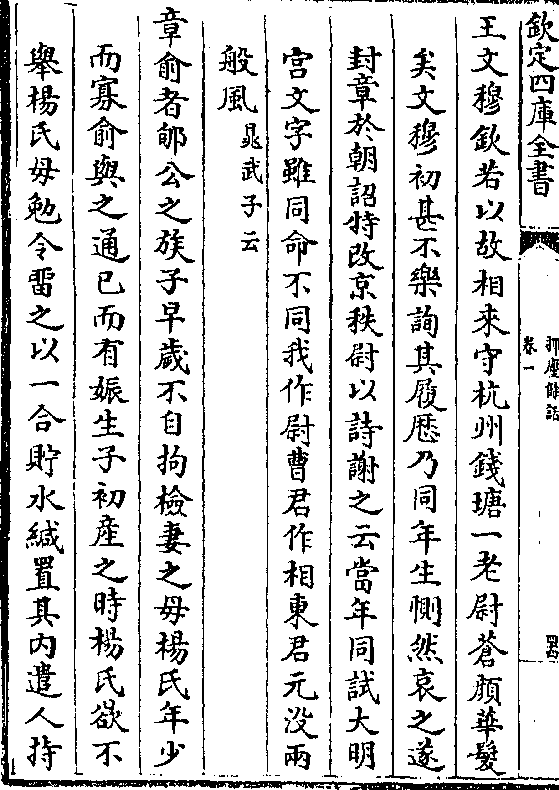 欽定四庫全書
揮麈餘話
卷一
王文穆欽若以故相來守杭州錢塘一老尉蒼顏華髮
矣文穆初甚不樂詢其履歷乃同年生惻然哀之遂
封章於朝詔特改京秩尉以詩謝之云當年同試大明
宮文字雖同命不同我作尉曹君作相東君元没兩
般風晁武子云
章俞者郇公之族子早歲不自拘檢妻之母楊氏年少
而寡俞與之通已而有娠生子初產之時楊氏欲不
舉楊氏母勉令留之以一合貯水緘置其內遣人持